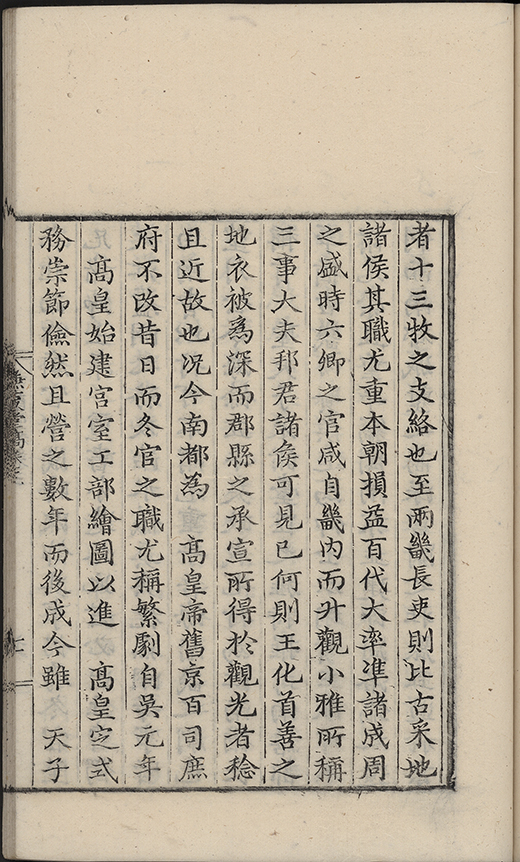 者十三牧之支絡也至兩畿長吏則比古采地
諸侯其職尤重本朝損益百代大率準諸成周
之盛時六卿之官咸自畿内而升觀小雅所稱
三事大夫邦君諸侯可見已何則王化首善之
地衣被爲深而郡縣之承宣所得於觀光者稔
且近故也况今南都為　髙皇帝舊京百司庶
府不改昔日而冬官之職尤稱繁劇自吳元年
　髙皇始建宫室工部繪圖以進　髙皇定式
務崇節儉然且營之數年而後成今雖　天子